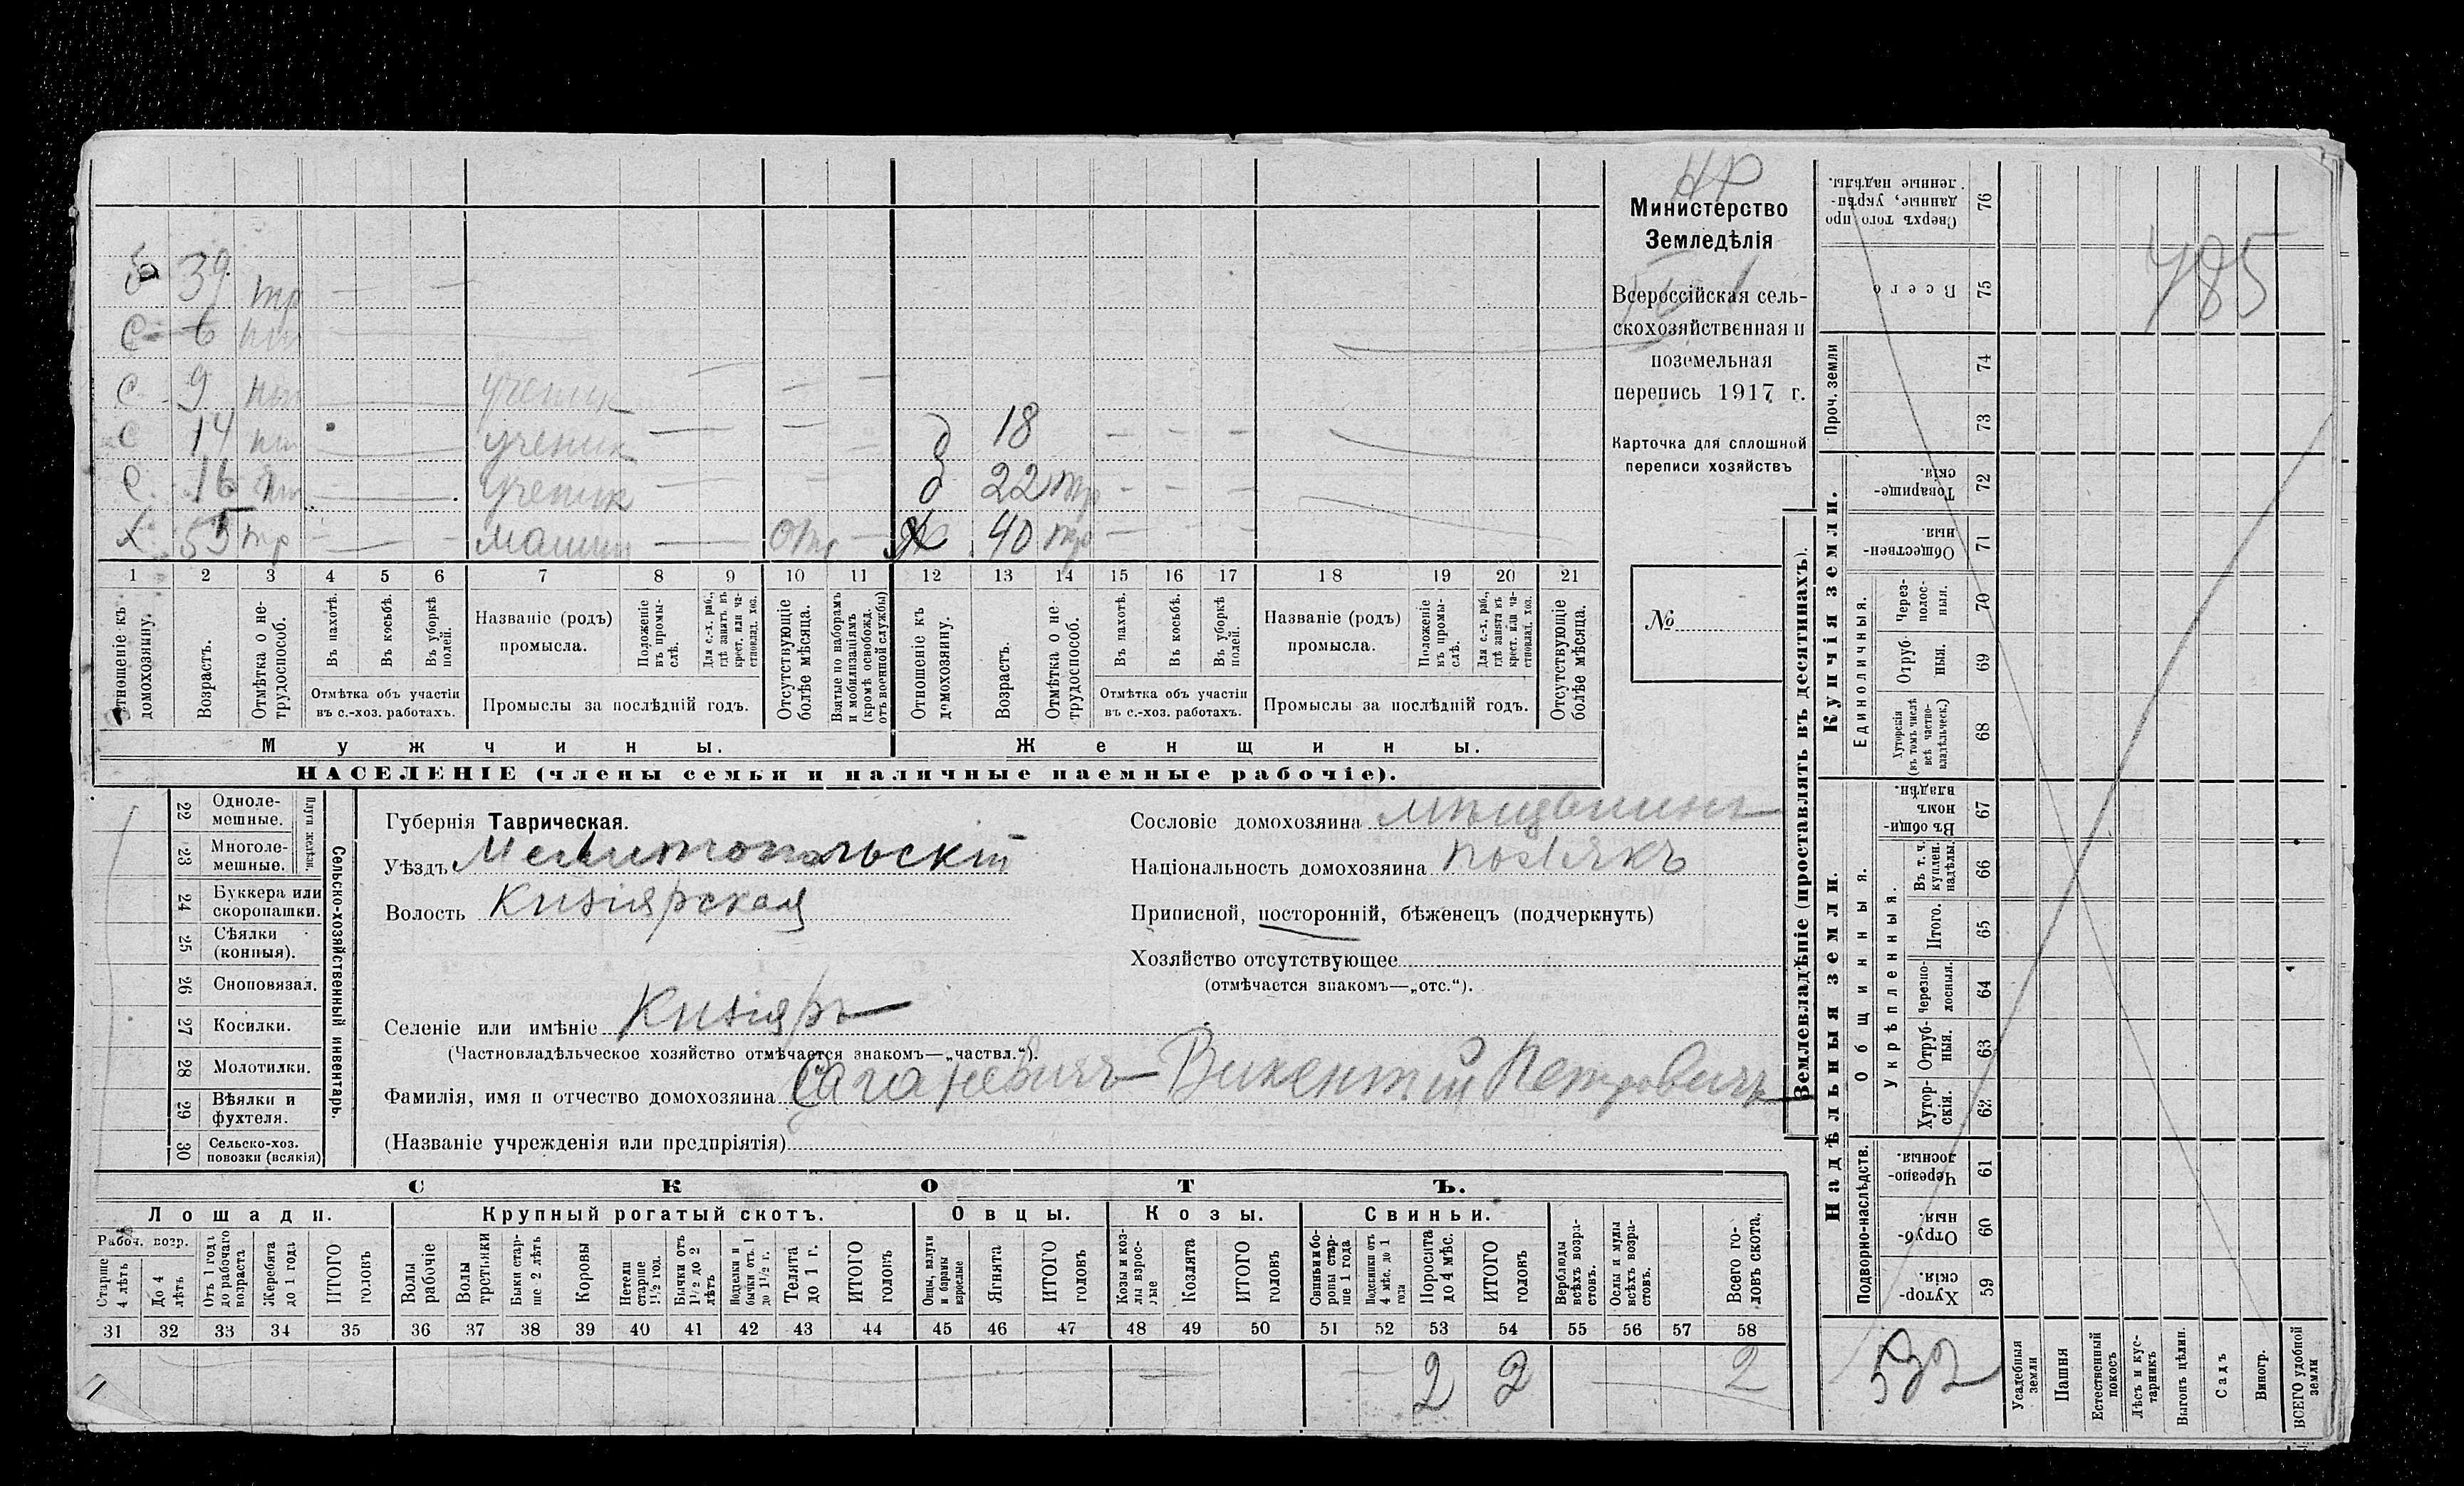 НР
Министерство
Земледѣлія
Всероссійская сель-
скохозяйственная и
поземельная
перепись 1917 г.
Карточка для сплошной
переписи хозяйствъ
№
39 тр
С 6
С 9 ученик
С 14 ученик
С 16 ученик
Х 55 тр машин отр
д 18
д 22 тр
Х 40 тр
1 2 3 4 5 6 7 8 9 10 11 12 13 14 15 16 17 18 19 20 21
Отношеніе къ домохозяину.
Возрастъ.
Отмѣтка о нетрудоспособ.
Въ пахотѣ.
Въ косьбѣ.
Въ уборкѣ полей.
Отмѣтка объ участіи
въ с.-хоз. работахъ.
Названіе (родъ)
промысла.
Положеніе въ промыслѣ.
Для с.-х. раб., гдѣ занятъ въ крест. или частновлад. хоз.
Промыслы за послѣдній годъ.
Отсутствующіе болѣе мѣсяца.
Взятые по наборамъ и мобилизаціямъ (кромѣ освобожд. отъ военной службы)
Отношеніе къ домохозяину.
Возрастъ.
Отмѣтка о нетрудоспособ.
Въ пахотѣ.
Въ косьбѣ.
Въ уборкѣ полей.
Отмѣтка объ участіи
въ с.-хоз. работахъ.
Названіе (родъ)
промысла.
Положеніе въ промыслѣ.
Для с.-х. раб., гдѣ занята въ крест. или частновлад. хоз.
Промыслы за послѣдній годъ.
Отсутствующіе болѣе мѣсяца.
Мужчины.
Женщины.
НАСЕЛЕНІЕ (члены семьи и наличные наемные рабочіе).
22 Одноле-
мешные.
23 Многоле-
мешные.
Плуги желѣзн.
24 Буккера или
скоропашки.
25 Сѣялки
(конныя).
26 Сноповязал.
27 Косилки.
28 Молотилки.
29 Вѣялки и
фухтеля.
30 Сельско-хоз.
повозки (всякія)
Сельско-хозяйственный инвентарь.
Губернія Таврическая.
Уѣздъ Мелитопольскій
Волость Кизіярская
Селеніе или имѣніе Кизіяръ
(Частновладѣльческое хозяйство отмѣчается знакомъ—„частвл.“).
Фамилія, имя и отчество домохозяина Саганевичъ Викентій Петровичъ
(Названіе учрежденія или предпріятія)
Сословіе домохозяина мѣщанинъ
Національность домохозяина полякъ
Приписной, посторонній, бѣженецъ (подчеркнуть)
Хозяйство отсутствующее
(отмѣчается знакомъ—„отс.“).
СКОТЪ.
Лошади.
Крупный рогатый скотъ.
Овцы.
Козы.
Свиньи.
Рабоч. возр.
Старше 4 лѣтъ
До 4 лѣтъ
Отъ 1 года до рабочаго возраста
Жеребята до 1 года
ИТОГО головъ
Волы рабочіе
Волы третьяки
Быки старше 2 лѣтъ
Коровы
Нетели старше 1½ год.
Бычки отъ 1½ до 2 лѣтъ
Подтелки и бычки отъ 1 до 1½ г.
Телята до 1 г.
ИТОГО головъ
Овцы, валухи и бараны взрослые
Ягнята
ИТОГО головъ
Козы и козлы взрослые
Козлята
ИТОГО головъ
Свиньи и боровы старше 1 года
Подсвинки отъ 4 мѣс. до 1 года
Поросята до 4 мѣс.
ИТОГО головъ
Верблюды всѣхъ возрастовъ.
Ослы и мулы всѣхъ возрастовъ.
Всего головъ скота.
31 32 33 34 35 36 37 38 39 40 41 42 43 44 45 46 47 48 49 50 51 52 53 54 55 56 57 58
2 2 2
Землевладѣніе (проставлять въ десятинахъ).
Надѣльныя земли.
Купчія земли.
Проч. земли
Подворно-наслѣдств.
Общинныя.
Укрѣпленныя.
Единоличныя.
Сверхъ того проданные, укрѣпленные надѣлы. 76
Всего 75
74
73
Товарищескія. 72
Общественныя. 71
Черезполосныя. 70
Отрубныя. 69
Хуторскія (въ томъ числѣ всѣ частновладѣльческ.) 68
Въ общинномъ владѣн. 67
Въ т. ч. куплен. надѣлы. 66
Итого. 65
Черезполосныя. 64
Отрубныя. 63
Хуторскія. 62
Черезполосныя. 61
Отрубныя. 60
Хуторскія. 59
Усадебныя земли
Пашня
Естественный покосъ
Лѣсъ и кустарникъ
Выгонъ цѣлин.
Садъ
Виногр.
ВСЕГО удобной земли
485